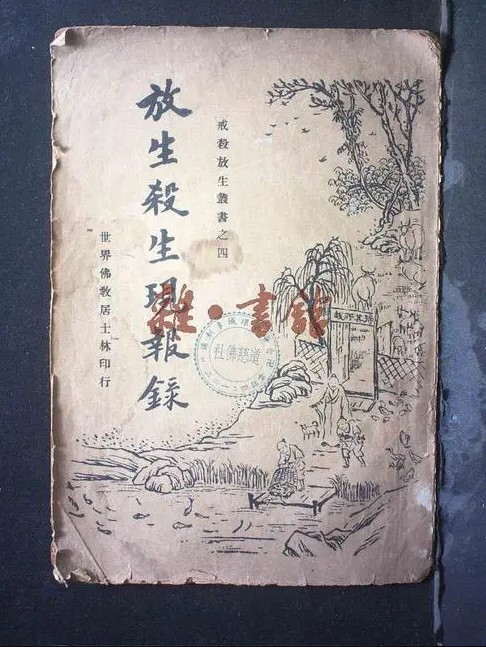 戒殺放生叢書之四
放生殺生現報錄
世界佛教居士林印行
書館